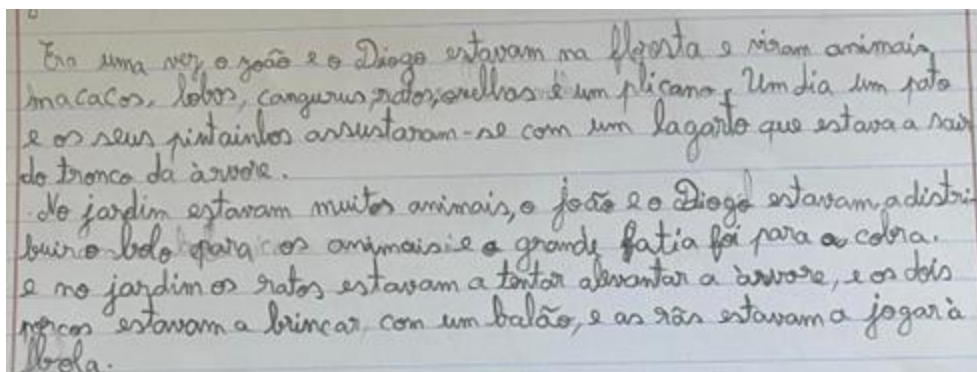 Era uma vez o joão e o Diogo estavam na flgosta e viram animais
macacos, lobos, cangurus, ratos, orelhas é um plicano, Um dia um pato
e os seus pintainhos assustaram-se com um lagarto que estava a sair
do tronco da àrvore.
No jardim estavam muitos animais, o joão e o Diogo estavam, a distri-
buir o bolo para os animais e a grande fatia foi para a cobra.
e no jardim os ratos estavam a tentar alevantar a àrvore, e os dois
porcos estavam a brincar, com um balão, e as rãs estavam a jogar à
bola.